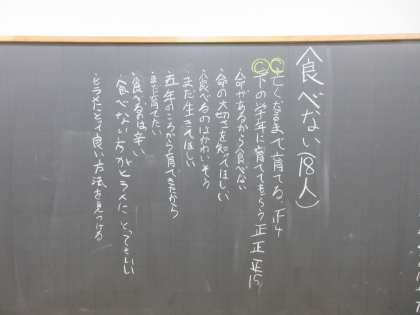 食べない(18人)
C 亡くなるまで育てる。正4
C 下の学年に育ててもらう 正正正15
命があるから食べない
命の大切さを知ってほしい
食べるのはかわいそう
まだ生きてほしい
五年のころから育てきたから
まだ育てたい
食べるのは辛い
食べない方がヒラメにとってもいい
ヒラメにとって良い方法を見つける